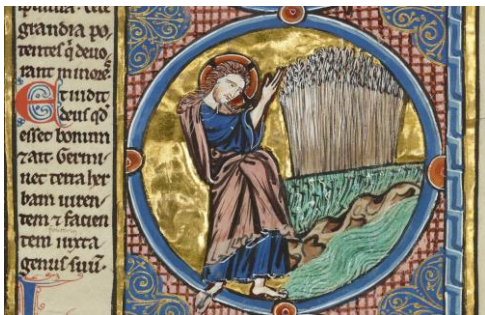 grandia po,
tentes q̃ deuo,
rant minores.
Et uidit
deus qd̃
esset bonum
⁊ ait Germi,
net terra her
bam uiren,
tem ⁊ facien
tem iuxta
genus suũ.